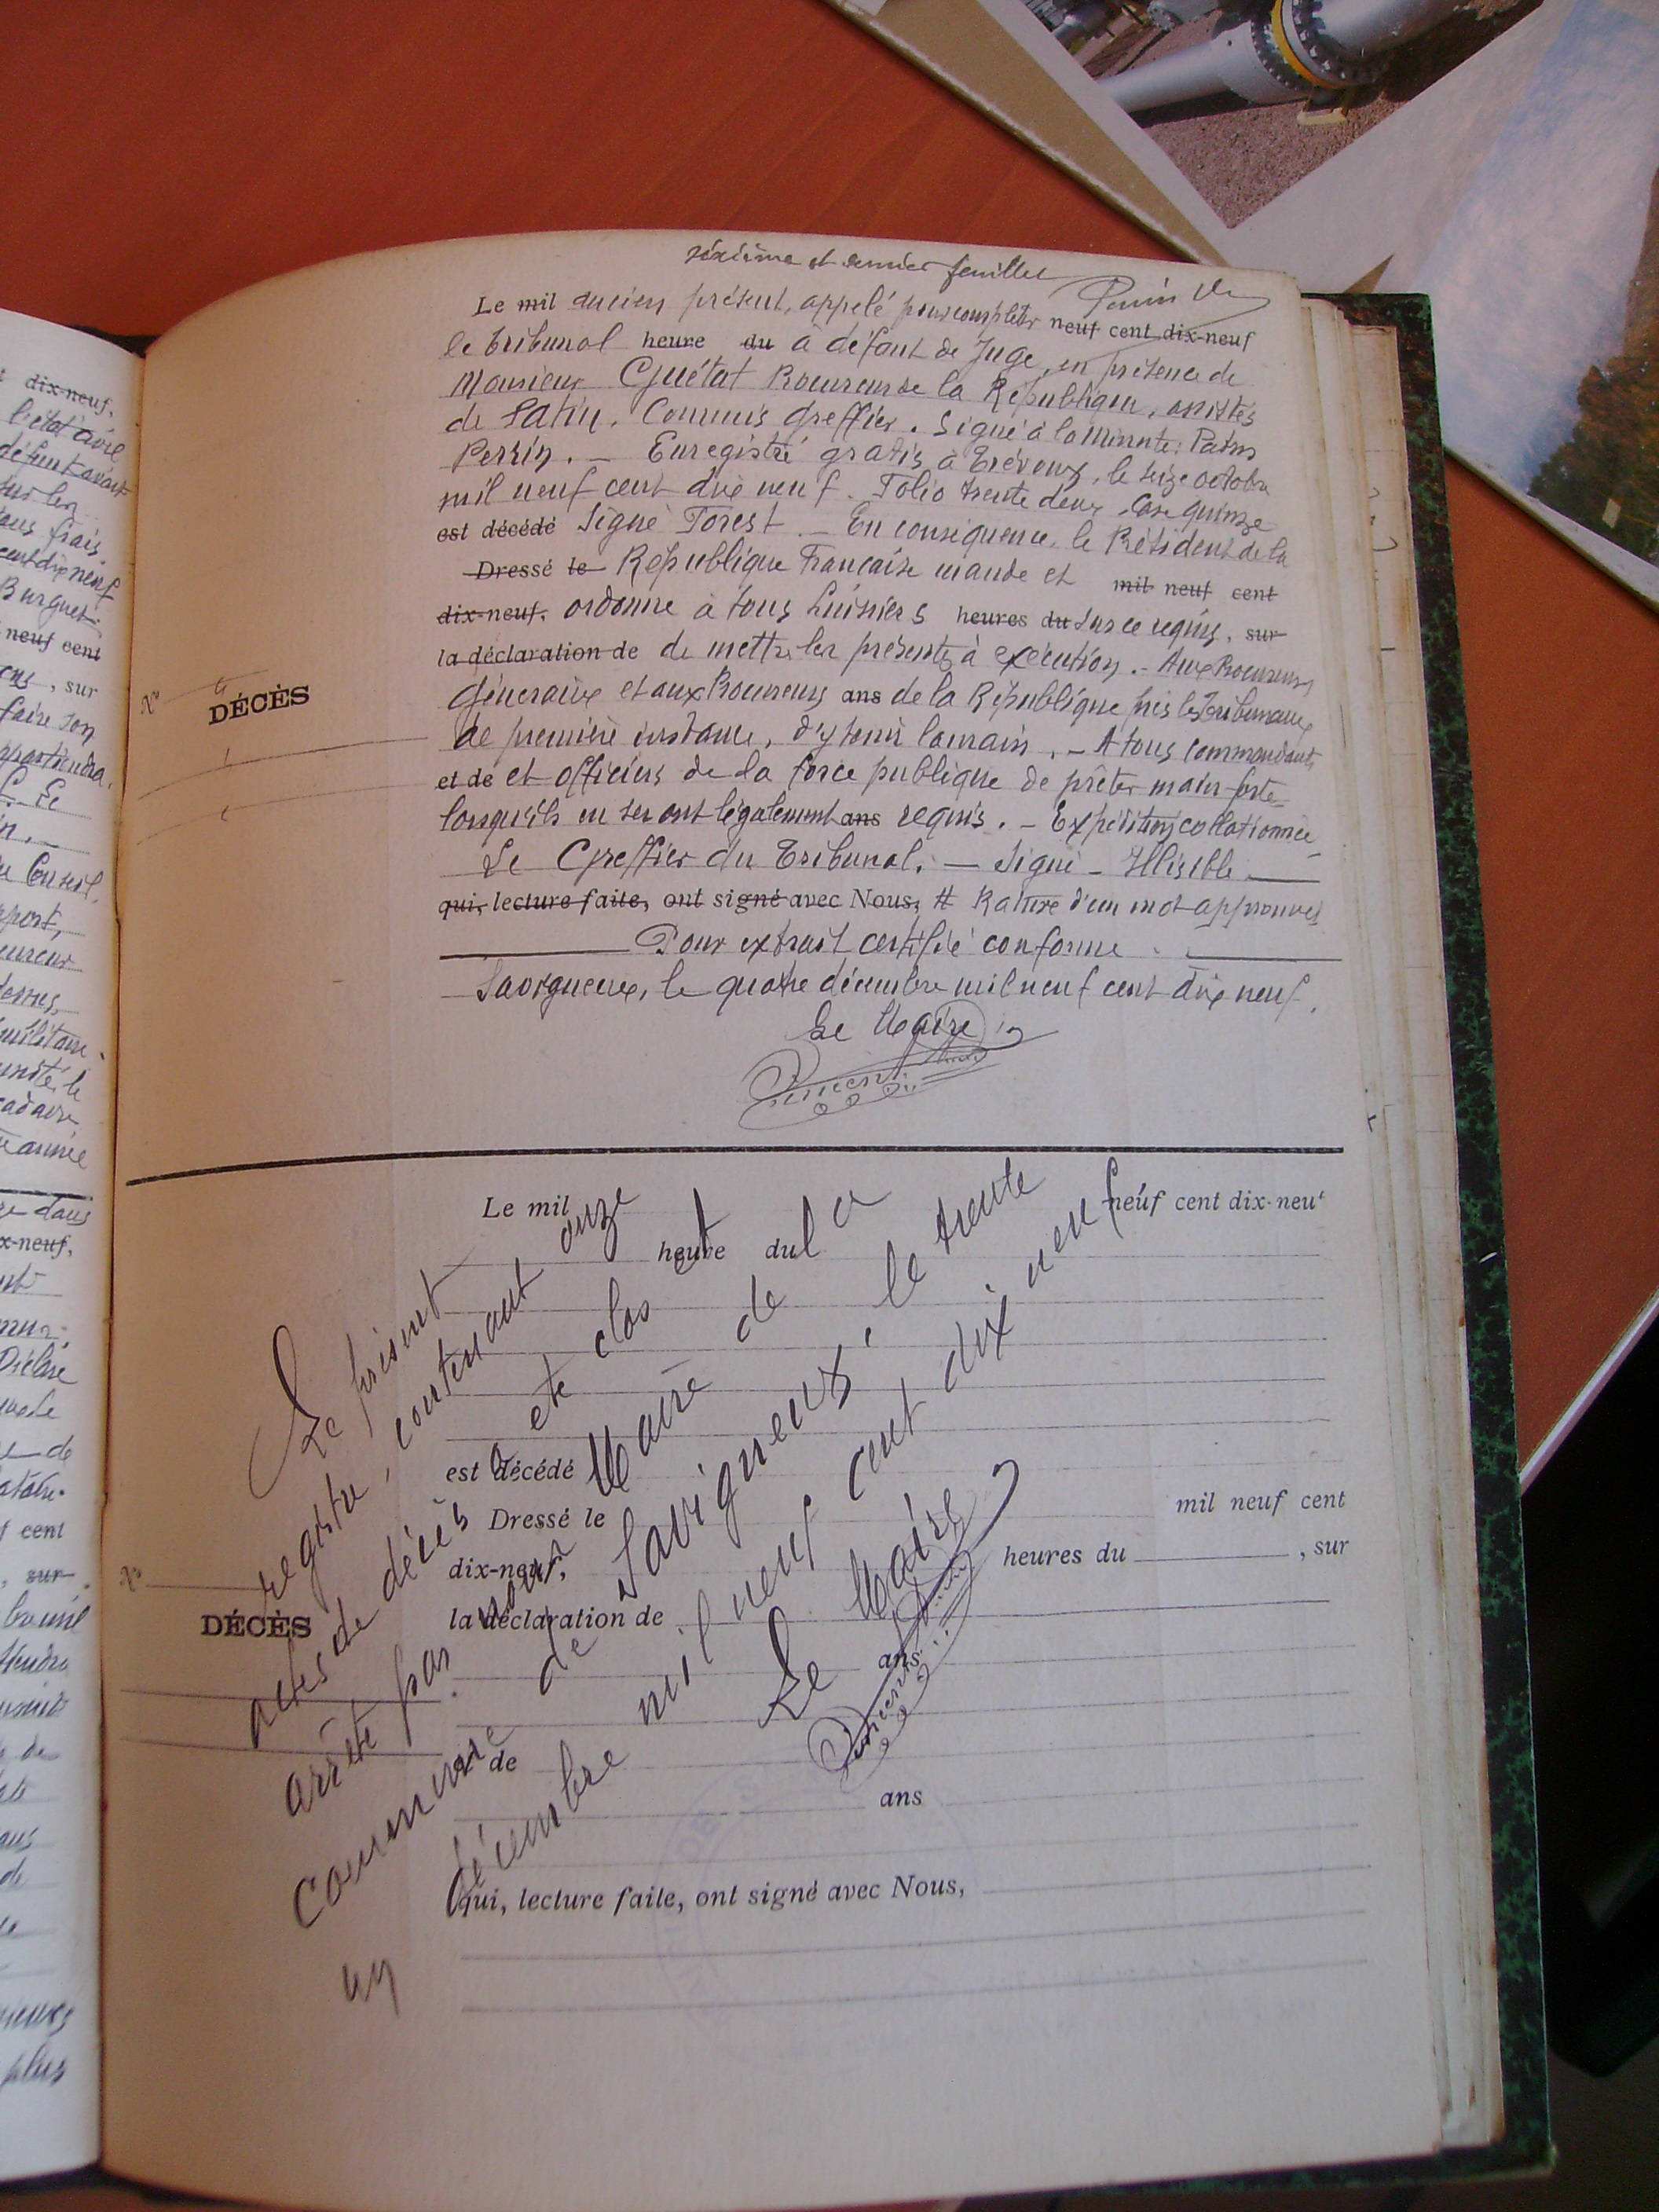 t dix-neuf.
l'état civil
défunt avait
sur les
ous frais.
cent dix neuf
Burguet.
neuf cent
, sur
faire son
appartiendra.
n. —
Conseil.
pport,
cureur
militaire.
unité, le
cadavre
année
dans
x-neuf,
Déclare
de
f cent
, sur
de
de
plus
sixième et dernier feuillet
Le mil ancien présent, appelé pour compléter neuf cent dix-neuf
le tribunal heure du à défaut de Juge, en présence de
Monsieur Guétat Procureur de la République, assistés
de Patin. Commis greffier. Signé à la minute: Patin
Perrin. — Enregistré gratis à Trévoux, le seize octobre
mil neuf cent dix neuf. Folio trente deux, Case quinze
est décédé Signé Forest. — En conséquence, le Président de la
Dressé le République Française mande et mil neuf cent
dix-neuf. ordonne à tous huissiers heures du sur ce requis, sur
la déclaration de de mettre les présentes à exécution. — Aux Procureurs
Généraux et aux Procureurs ans de la République près les Tribunaux
de première instance, d'y tenir la main. — A tous commandants
et de et officiers de la force publique de prêter main forte
lorsqu'ils en seront légalement ans requis. — Expédition collationnée
Le Greffier du Tribunal. — Signé — Illisible —
qui, lecture faite, ont signé avec Nous, # Rature d'un mot approuvée
Pour extrait certifié conforme.
Savigneux, le quatre décembre mil neuf cent dix neuf.
Le Maire
N°
DÉCÈS
Le mil neuf cent dix-neuf
heure du
est décédé
Dressé le mil neuf cent
dix-neuf, heures du , sur
la déclaration de
ans
et de
ans
qui, lecture faite, ont signé avec Nous,
N°
DÉCÈS
Le présent
registre, contenant onze
actes de décès a été clos et
arrêté par nous Maire de la
commune de Savigneux, le trente
un décembre mil neuf cent dix neuf
Le Maire